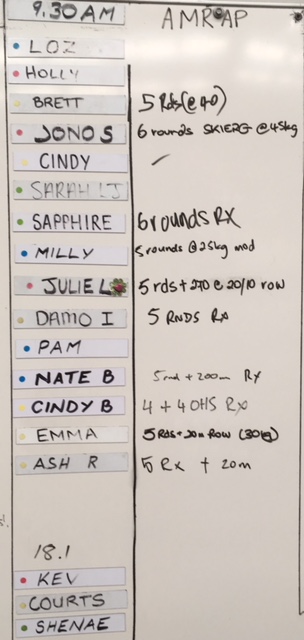 9.30 AM AMRAP
LOZ
HOLLY
BRETT 5 Rds (@40)
JONO S 6 rounds SKIERG @45kg
CINDY
SARAH LJ
SAPPHIRE 6 rounds RX
MILLY 5 rounds @25kg mod
JULIE L 5 rds + 270 @ 20/10 row
DAMO I 5 RNDS Rx
PAM
NATE B 5rnd + 200m RX
CINDY B 4 + 4 OHS RX
EMMA 5 Rds + 20m Row (30kg)
ASH R 5 Rx + 20m
18.1
KEV
COURTS
SHENAE